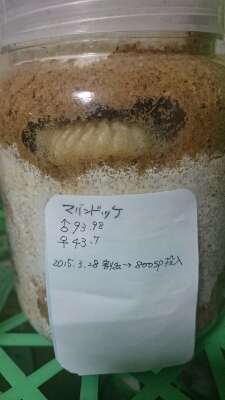 マバンドッケ
♂93.98
♀43.7
2015.3.28 割出→800SP投入